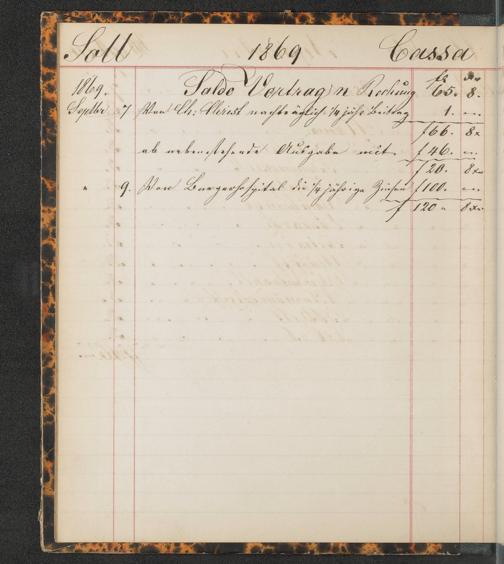 Soll 1869 Cassa
fl xr
1869. Saldo Vortrag n Rechnung 65. 8.
Septbr 7 Von Ch: Christ nachträglich ¼ jähr Beitrag 1. "
f 66. 8x
ab nebenstehende Ausgabe mit f 46. "
f 20. 8x
" 9. Von Burgerhospital die ½ jährige Zinsen f 100. "
f 120 " 8x